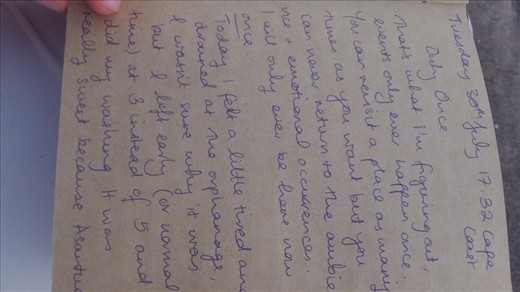 Tuesday 30th July 17.32 Cape
Coast
Only Once
Thats what I'm figuring out,
events only ever happen once.
You can revisit a place as many
times as you want but you
can never return to the ambie
nce + emotional occurrences.
I will only ever be here now
once.
Today I felt a little tired and
drained at the orphanage,
I wasn't sure why it was
but I left early (or normal
time) at 3 instead of 5 and
did my washing. It was
really sweet because Asantewa